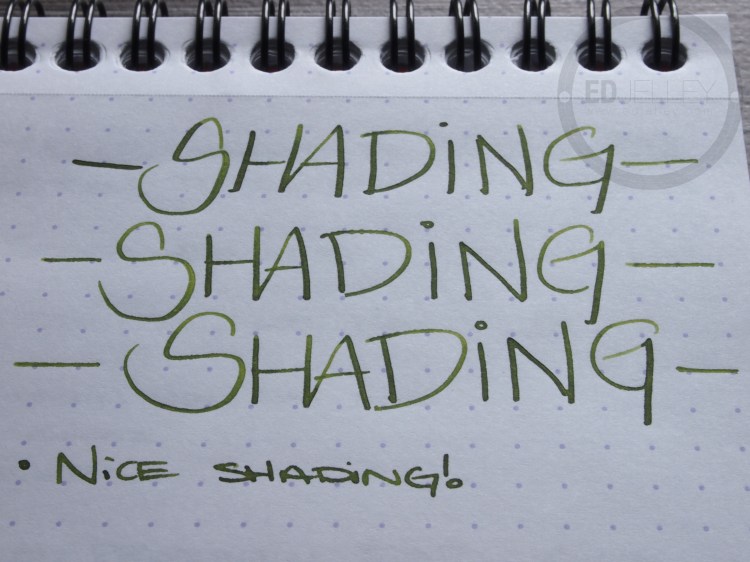 ED JELLEY
– SHADiNG –
– SHADiNG –
– SHADiNG –
• NiCE SHADiNG!